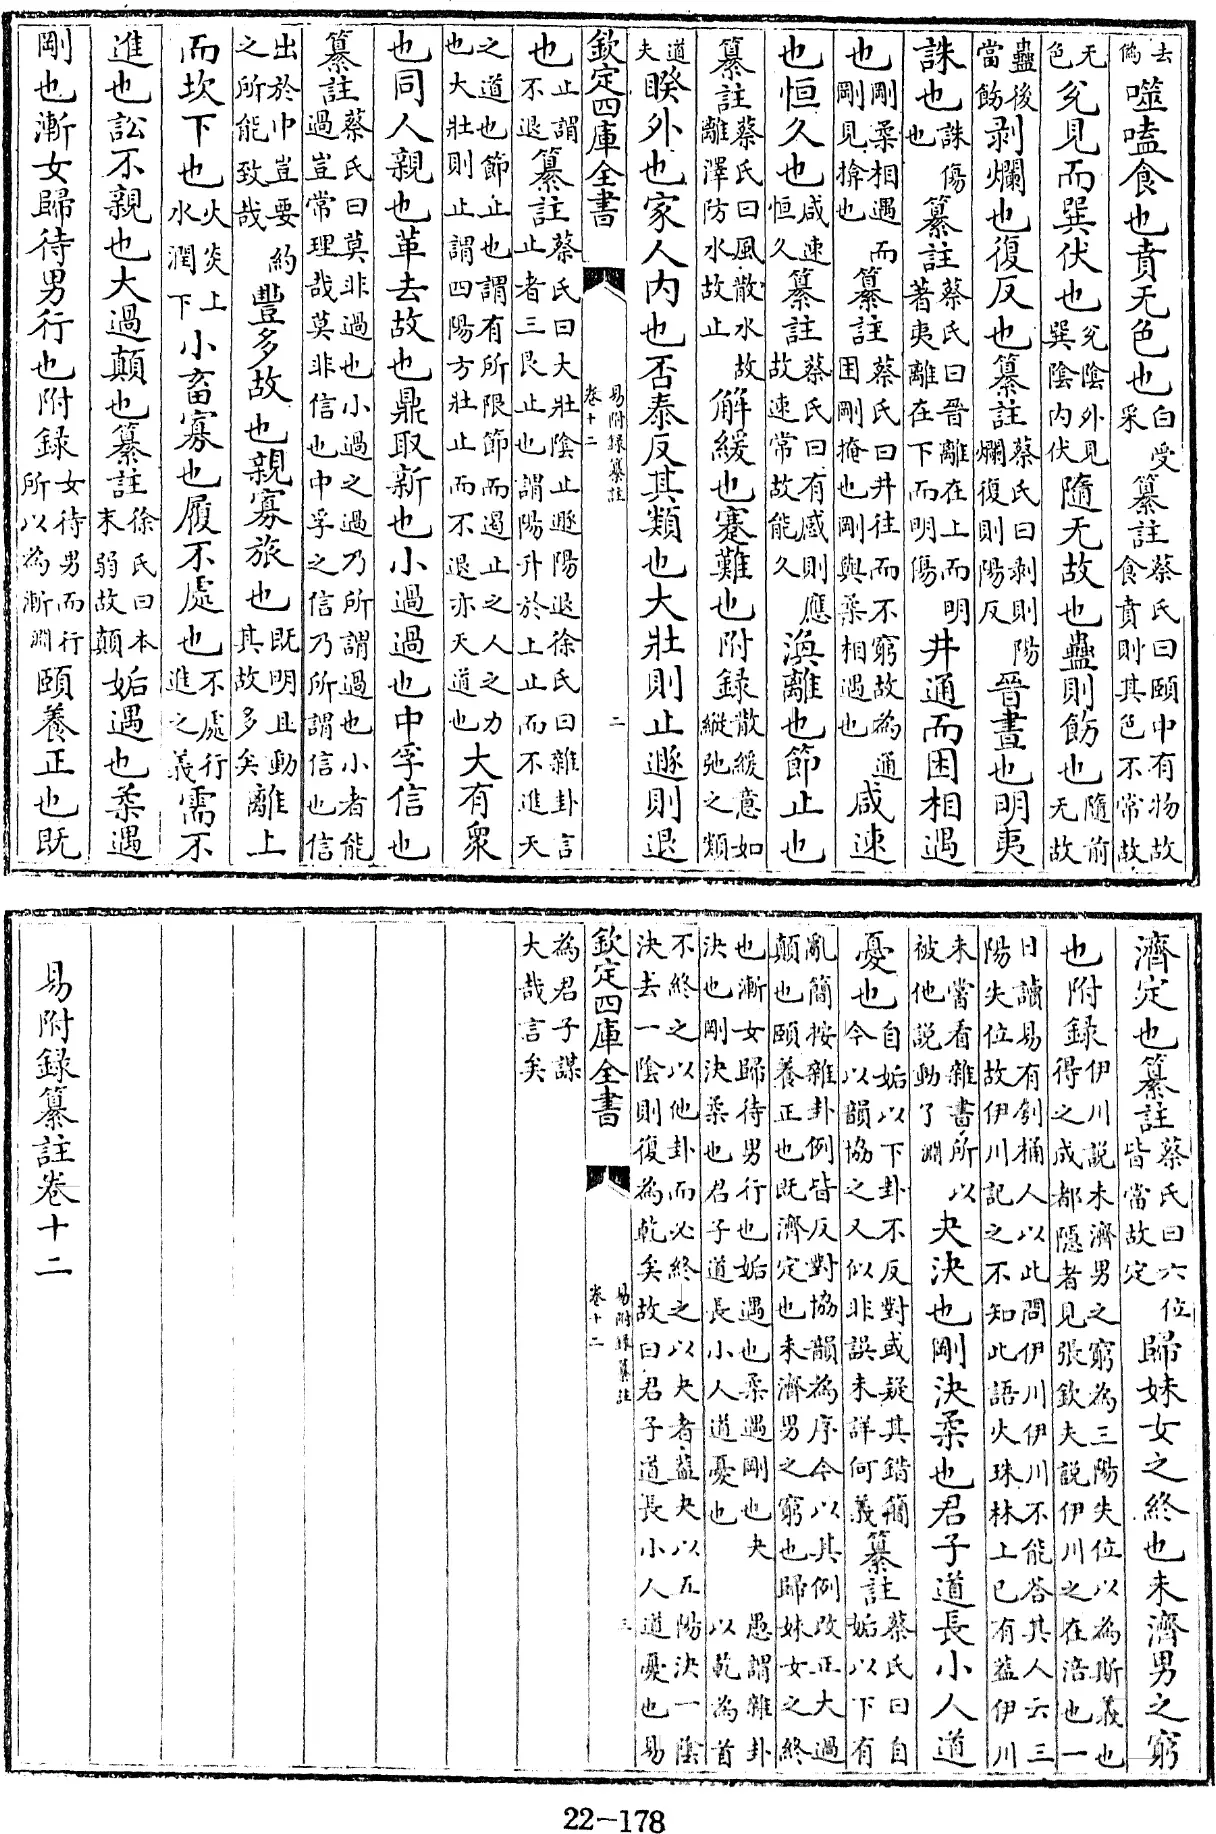 去偽噬嗑食也賁无色也白受采纂註蔡氏曰頤中有物故食賁則其色不常故
无色兌見而巽伏也兌陰外見巽陰内伏隨无故也蠱則飭也隨前无故
蠱後當飭剥爛也復反也纂註蔡氏曰剥則陽爛復則陽反晉晝也明夷
誅也誅傷也纂註蔡氏曰晉離在上而明著夷離在下而明傷井通而困相遇
也剛柔相遇而剛見揜也纂註蔡氏曰井往而不窮故為通困剛掩也剛與柔相遇也咸速
也恒久也咸速恒久纂註蔡氏曰有感則應故速常故能久渙離也節止也
纂註蔡氏曰風散水故離澤防水故止解緩也蹇難也附録散緩意如縱弛之類
道夫睽外也家人内也否泰反其類也大壯則止遯則退
欽定四庫全書 易附録纂註卷十二 二
也止謂不退纂註蔡氏曰大壯陰止遯陽退徐氏曰雜卦言止者三艮止也謂陽升於上止而不進天
之道也節止也謂有所限節而遏止之人之力也大壯則止謂四陽方壯止而不退亦天道也大有衆
也同人親也革去故也鼎取新也小過過也中孚信也
纂註蔡氏曰莫非過也小過之過乃所謂過也小者能過豈常理哉莫非信也中孚之信乃所謂信也信
出於中豈要約之所能致哉豐多故也親寡旅也既明且動其故多矣離上
而坎下也火炎上水潤下小畜寡也履不處也不處行進之義需不
進也訟不親也大過顛也纂註徐氏曰本末弱故顛姤遇也柔遇
剛也漸女歸待男行也附録女待男而行所以為漸淵頤養正也既
濟定也纂註蔡氏曰六位皆當故定歸妹女之終也未濟男之窮
也附録伊川説未濟男之窮為三陽失位以為斯義也得之成都隱者見張欽夫説伊川之在涪也一
日讀易有箍桶人以此問伊川伊川不能答其人云三陽失位故伊川記之不知此語火珠林上已有蓋伊川
未嘗看雜書所以被他説動了淵夬決也剛決柔也君子道長小人道
憂也自姤以下卦不反對或疑其錯簡今以韻協之又似非誤未詳何義纂註蔡氏曰自姤以下有
亂簡按雜卦例皆反對協韻為序今以其例改正大過顛也頤養正也既濟定也未濟男之窮也歸妹女之終
也漸女歸待男行也姤遇也柔遇剛也夬決也剛決柔也君子道長小人道憂也愚謂雜卦以乾為首
不終之以他卦而必終之以夬者蓋夬以五陽決一陰決去一陰則復為乾矣故曰君子道長小人道憂也易
欽定四庫全書 易附録纂註卷十二 三
為君子謀大哉言矣
易附録纂註卷十二
22-178